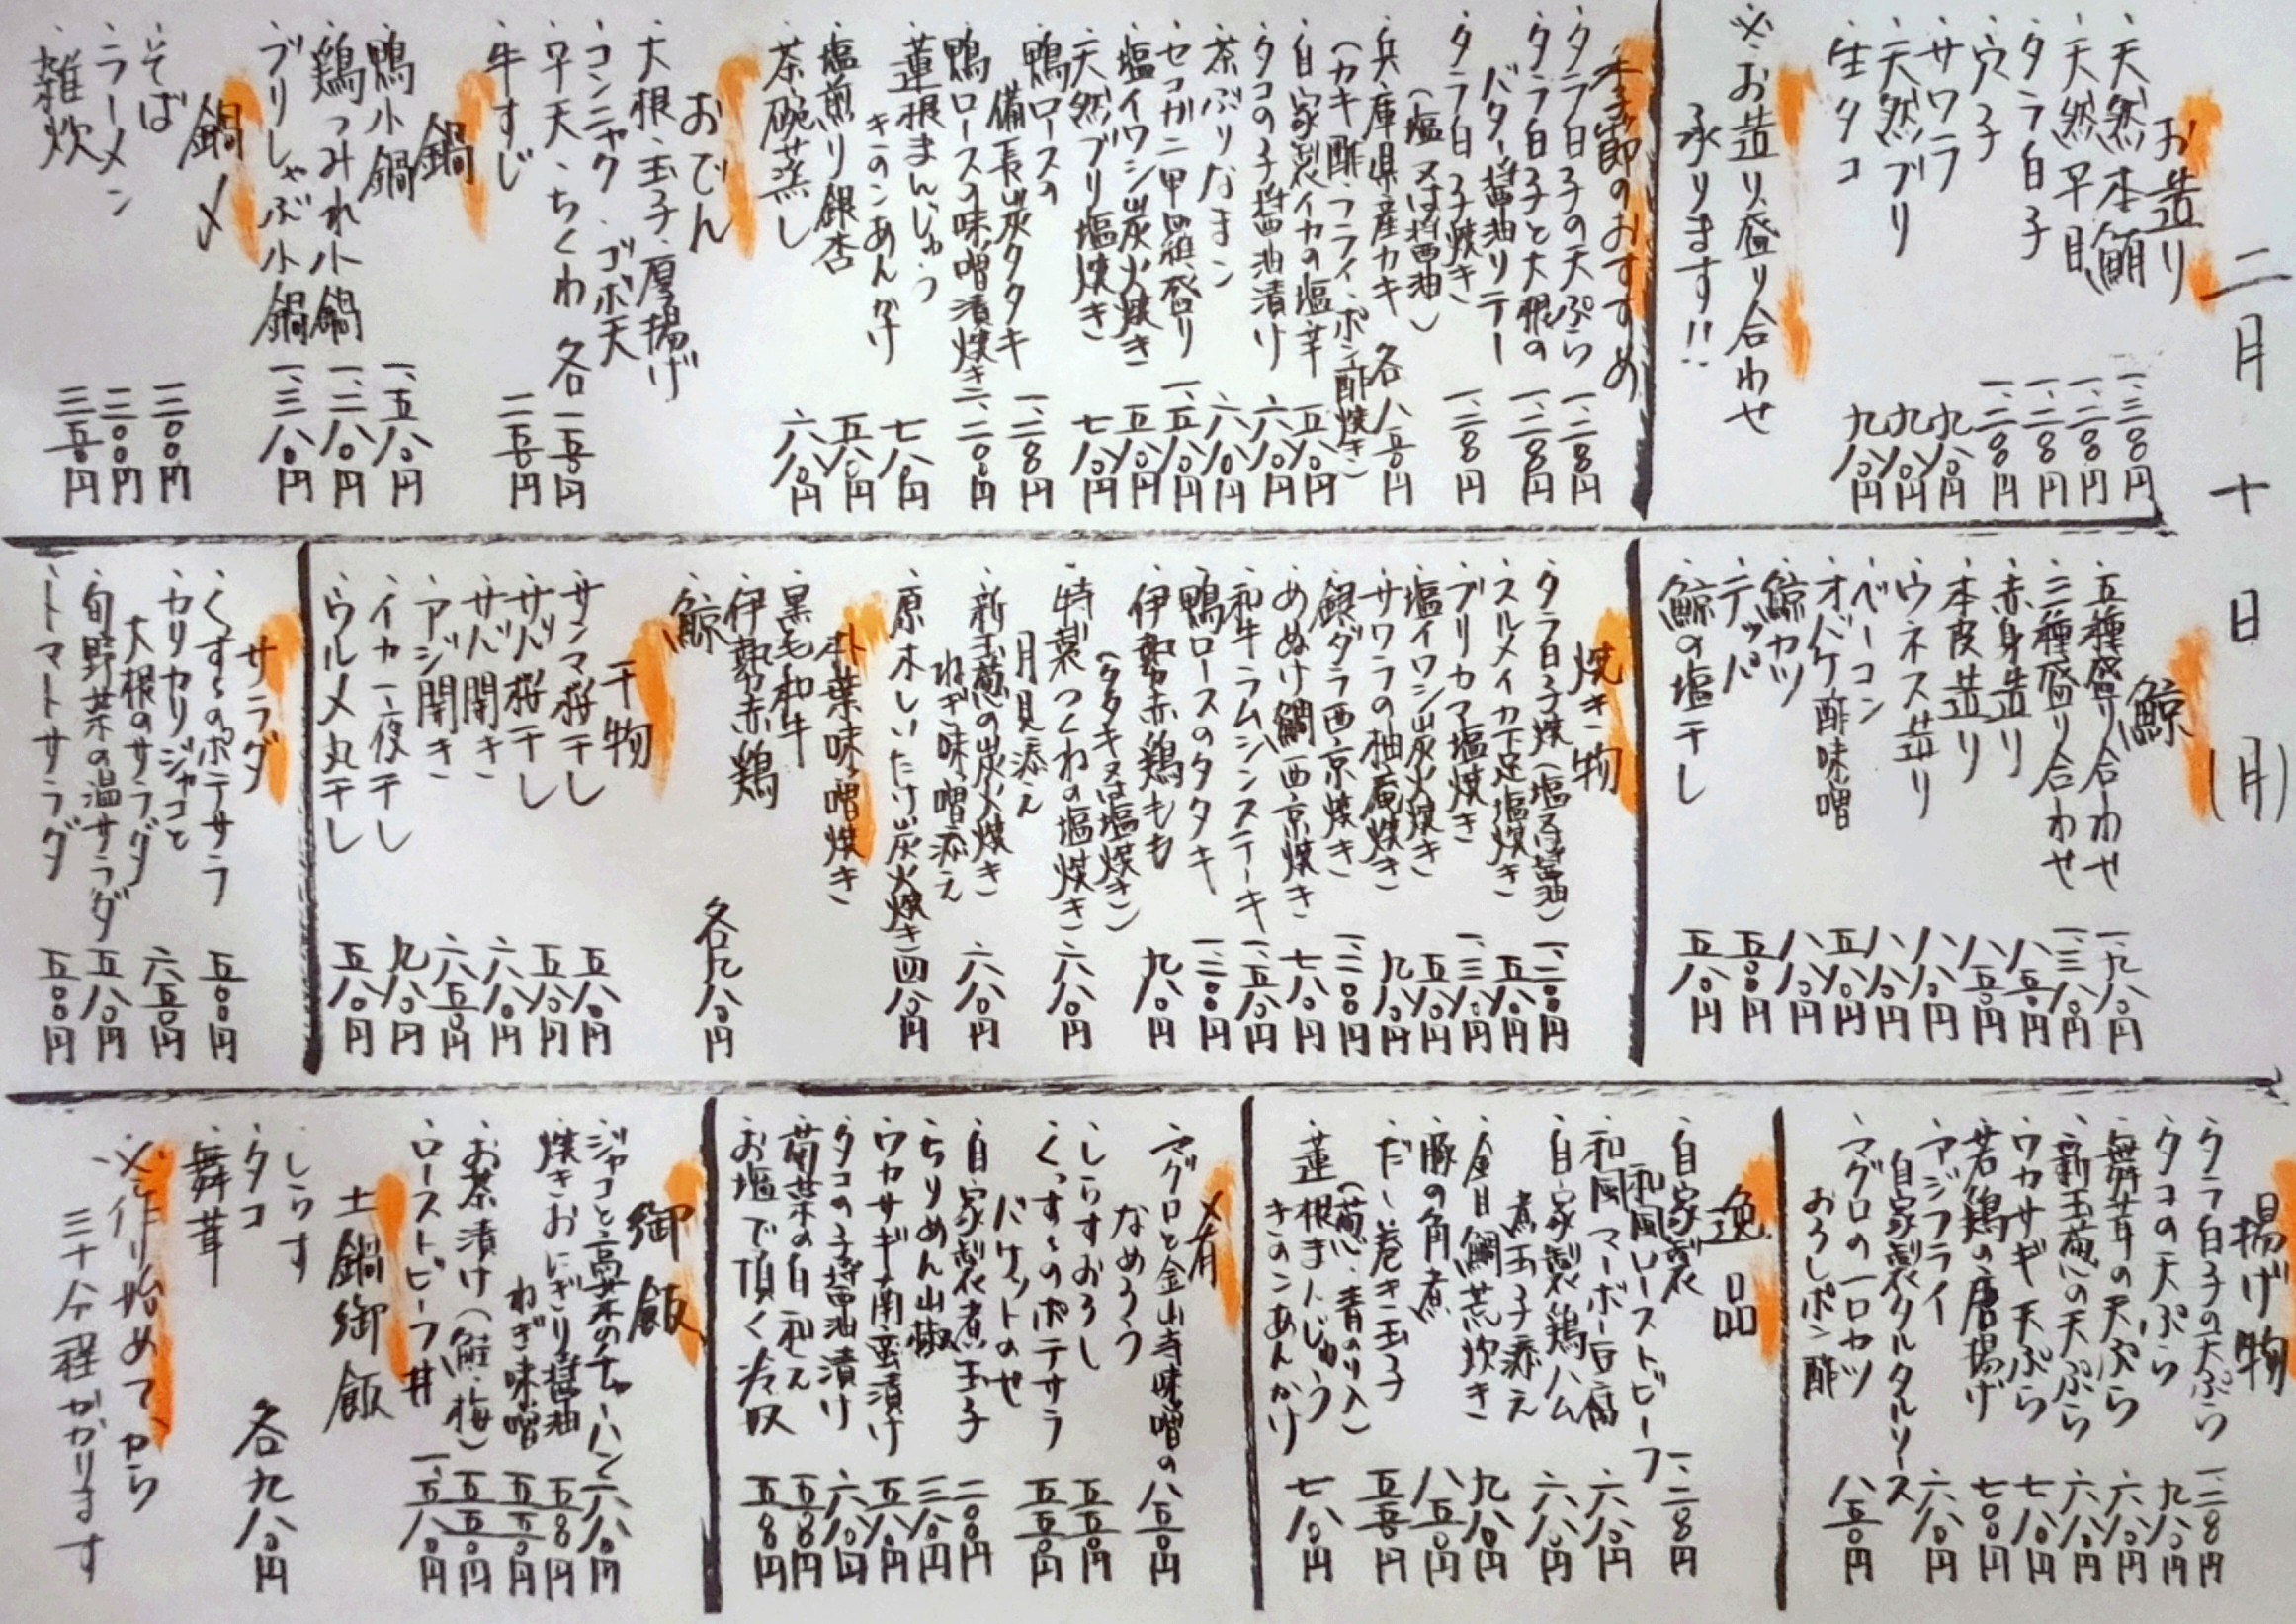 二月十日(月)
お造り
・天然本鮪 一、三〇〇円
・天然平目 一、二〇〇円
・タラ白子 一、二〇〇円
・穴子 一、二〇〇円
・サワラ 九八〇円
・天然ブリ 九八〇円
・生タコ 九八〇円
※お造り盛り合わせ
承ります!!
季節のおすすめ
・タラ白子の天ぷら 一、二〇〇円
・タラ白子と大根の
バター醤油ソテー 一、二〇〇円
・タラ白子焼き
(塩又は醤油) 一、二〇〇円
・兵庫県産カキ 各八五〇円
(カキ酢・フライ・ポン酢焼き)
・自家製イカの塩辛 五八〇円
・タコの子醤油漬け 六八〇円
・茶ぶりなまこ 六八〇円
・セコガニ甲羅盛り 一、五八〇円
・塩イワシ炭火焼き 五八〇円
・天然ブリ塩焼き 七八〇円
・鴨ロースの
備長炭タタキ 一、二〇〇円
・鴨ロースの味噌漬焼き 一、二〇〇円
・蓮根まんじゅう
きのこあんかけ 七八〇円
・塩煎り銀杏 五八〇円
・茶碗蒸し 六八〇円
おでん
・大根・玉子・厚揚げ
・コンニャク・ゴボ天
・平天・ちくわ 各二五〇円
・牛すじ 二五〇円
鍋
・鴨小鍋 一、五八〇円
・鶏つみれ小鍋 一、二八〇円
・ブリしゃぶ小鍋 一、三八〇円
鍋〆
・そば 三〇〇円
・ラーメン 三〇〇円
・雑炊 三五〇円
鯨
・五種盛り合わせ 一、九八〇円
・三種盛り合わせ 一、三八〇円
・赤身造り 八五〇円
・本皮造り 八五〇円
・ウネス造り 八八〇円
・ベーコン 八八〇円
・オバケ酢味噌 五八〇円
・鯨カツ 八八〇円
・テッパ 五〇〇円
・鯨の塩干し 五八〇円
焼き物
・タラ白子焼(塩又は醤油) 一、二〇〇円
・スルメイカ下足塩焼き 五八〇円
・ブリカマ塩焼き 一、三八〇円
・塩イワシ炭火焼き 五八〇円
・サワラの柚庵焼き 九八〇円
・銀ダラ西京焼き 一、三〇〇円
・めぬけ鯛西京焼き 七八〇円
・和牛ラムシンステーキ 一、五八〇円
・鴨ロースのタタキ 一、二〇〇円
・伊勢赤鶏もも
(タタキ又は塩焼き) 九八〇円
・特製つくねの塩焼き
月見添え 六八〇円
・新玉葱の炭火焼き
ねぎ味噌添え 六八〇円
・原木しいたけ炭火焼き 四八〇円
朴葉味噌焼き
・黒毛和牛
・伊勢赤鶏
・鯨 各九八〇円
干物
・サンマ桜干し 五八〇円
・サバ桜干し 五八〇円
・サバ開き 六八〇円
・アジ開き 六五〇円
・イカ一夜干し 九八〇円
・ウルメ丸干し 五八〇円
サラダ
・くすくすのポテサラ 五〇〇円
・カリカリジャコと
大根のサラダ 六五〇円
・旬野菜の温サラダ 五八〇円
・トマトサラダ 五〇〇円
揚げ物
・タラ白子の天ぷら 一、二〇〇円
・タコの天ぷら 九八〇円
・舞茸の天ぷら 六五〇円
・新玉葱の天ぷら 六八〇円
・ワカサギ天ぷら 七八〇円
・若鶏の唐揚げ 七〇〇円
・アジフライ
自家製タルタルソース 六八〇円
・マグロの一口カツ
おろしポン酢 八五〇円
逸品
・自家製
和風ローストビーフ 一、二〇〇円
・和風マーボー豆腐 六八〇円
・自家製鶏ハム
煮玉子添え 六八〇円
・金目鯛荒炊き 九八〇円
・豚の角煮 八五〇円
・だし巻き玉子
(葱・青のり入) 五五〇円
・蓮根まんじゅう
きのこあんかけ 七八〇円
〆肴
・マグロと金山寺味噌の
なめろう 八五〇円
・しらすおろし 五五〇円
・くすくすのポテサラ
バケットのせ 五五〇円
・自家製煮玉子 二〇〇円
・ちりめん山椒 三八〇円
・ワカサギ南蛮漬け 五八〇円
・タコの子醤油漬け 六八〇円
・菊菜の白和え 五五〇円
・お塩で頂く冷奴 五〇〇円
御飯
・ジャコと高菜のチャーハン 六八〇円
・焼きおにぎり醤油 五〇〇円
ねぎ味噌 五五〇円
・お茶漬け(鮭・梅) 五五〇円
・ローストビーフ丼 一、五八〇円
土鍋御飯
・しらす
・タコ
・舞茸 各九八〇円
※作り始めてから
三十分程かかります